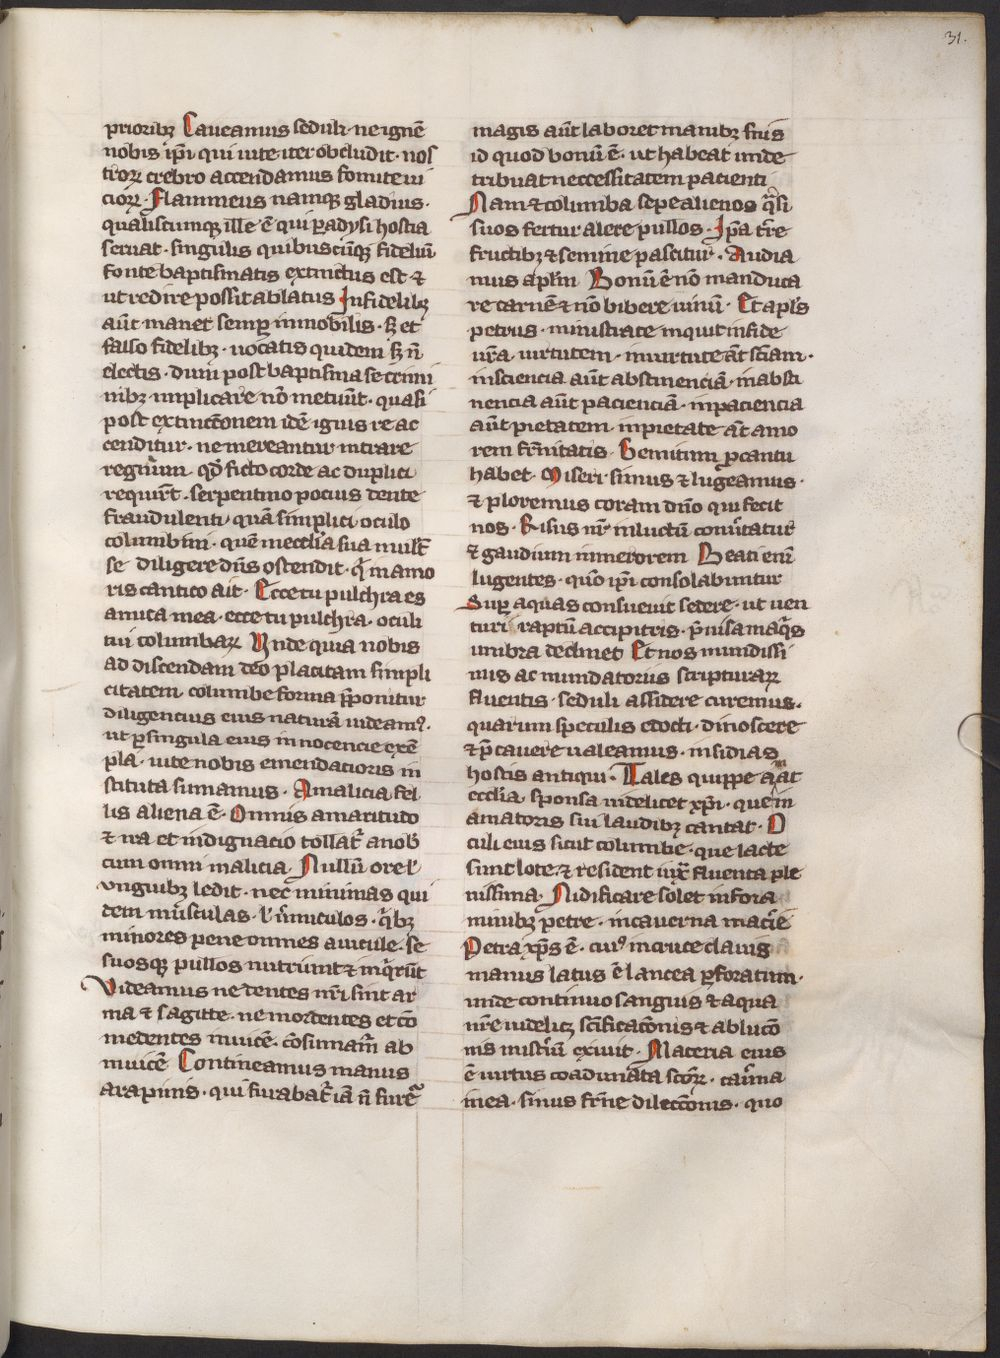 31.
prioribꝫ Caueamus seduli· ne ignē
nobis ip̄i qui uite iter obcludit· nos
troꝝ crebro accendamus fomite ui
cioꝝ· Flammeus namqꝫ gladius·
qualiscumqꝫ ille ē qui ꝑadysi hostia
seruat· singulis quibuscūqꝫ fideliū
fonte baptismatis extinctus est ⁊
ut redire possit ablatus Infidelibꝫ
aūt manet semꝑ inmobilis· sꝫ et
falso fidelibꝫ· uocatis quidem sꝫ n̄
electis· dum post baptisma se crimi
nibꝫ implicare nō metuūt· quasi
post extinccōnem idē ignis re ac
cenditur· ne mereantur intrare
regnum· qd̄ ficto corde ac duplici
requirūt· serpentino pocius dente
fraudulenti· quā simplici oculo
columbini· quē in ecclīa sua mult̄
se diligere dn̄s ostendit· qͥ in amo
ris cantico ait· Ecce tu pulchra es
amica mea· ecce tu pulchra· oculi
tui columbaꝝ Unde quia nobis
ad discendam deo placitam simpli
citatem· columbe forma ꝓponitur
diligencius eius naturā uideamꝰ·
ut ꝑ singula eius innocencie exē
pla· uite nobis emendacioris in
stituta sumamus· A malicia fel
lis aliena ē· Omnis amaritudo
⁊ ira et indignacio tollat᷑ a nob̾
cum omni malicia· Nullū ore l̾
unguibꝫ ledit· nec minimas qui
dem musculas· l̾ u̾miculos· qͥbꝫ
minores pene omnes auicule· se
suosqꝫ pullos nutriunt ⁊ inqͥrūt
Uideamus ne dentes nr̄i sint ar
ma ⁊ sagitte· ne mordentes et cō
medentes inuicē· cōsumam̄ ab
inuicē Contineamus manus
a rapinis· qui furabat᷑ iā n̄ furet᷑
magis aūt laboret manibꝫ suis
id quod bonū ē· ut habeat unde
tribuat neccessitatem pacienti
Nam ⁊ columba sepe alienos qͣsi
suos fertur alere pullos· Ip̄a tr̄e
fructibꝫ ⁊ semine pascitur· Audia
mus ap̄lm Bonū ē nō manduca
re carnē ⁊ nō bibere uinū· Et ap̄ls
petrus· ministrate inquit in fide
ur̄a uirtutem· in uirtute aūt sciam·
in sciencia aūt abstinenciā· in absti
nencia aūt pacienciā· in paciencia
aūt pietatem· in pietate aūt amo
rem fr̄nitatis· Gemitum ꝓ cantu
habet· Miseri simus ⁊ lugeamus·
⁊ ploremus coram dn̄o qui fecit
nos· Risus nr̄ in luctū conu̾tatur
⁊ gaudium in merorem Beati eni
lugentes· qm̄ ip̄i consolabuntur
Suꝑ aquas consueuit sedere· ut uen
turi raptū accipitris· p̄uisa in aqͥs
umbra declinet Et nos mundissi
mis ac mundatoriis scripturaꝝ
fluentis· seduli assidere curemus·
quarum speculis edocti· dinoscere
⁊ p̄cauere ualeamus· insidias
hostis antiqui· Tales quippe amat
ecclīa· sponsa uidelicet xp̄i· que in
amatoris sui laudibꝫ cantat· O
culi eius sicut columbe· que lacte
sunt lote· ⁊ resident iux̄ fluenta ple
nissima· Nidificare solet in fora
minibꝫ petre· in cauerna macīe
Petra xp̄s ē· cuiꝰ in cruce clauis
manus latus ē lancea ꝑforatum·
unde continuo sanguis ⁊ aqua
nr̄e uidelicꝫ sc̄ificacōnis ⁊ ablucō
nis mist̾iū exiuit· Materia eius
ē uirtus coadunata scōꝝ· cau̾na
mea· sinus fr̄ne dileccōnis· quo